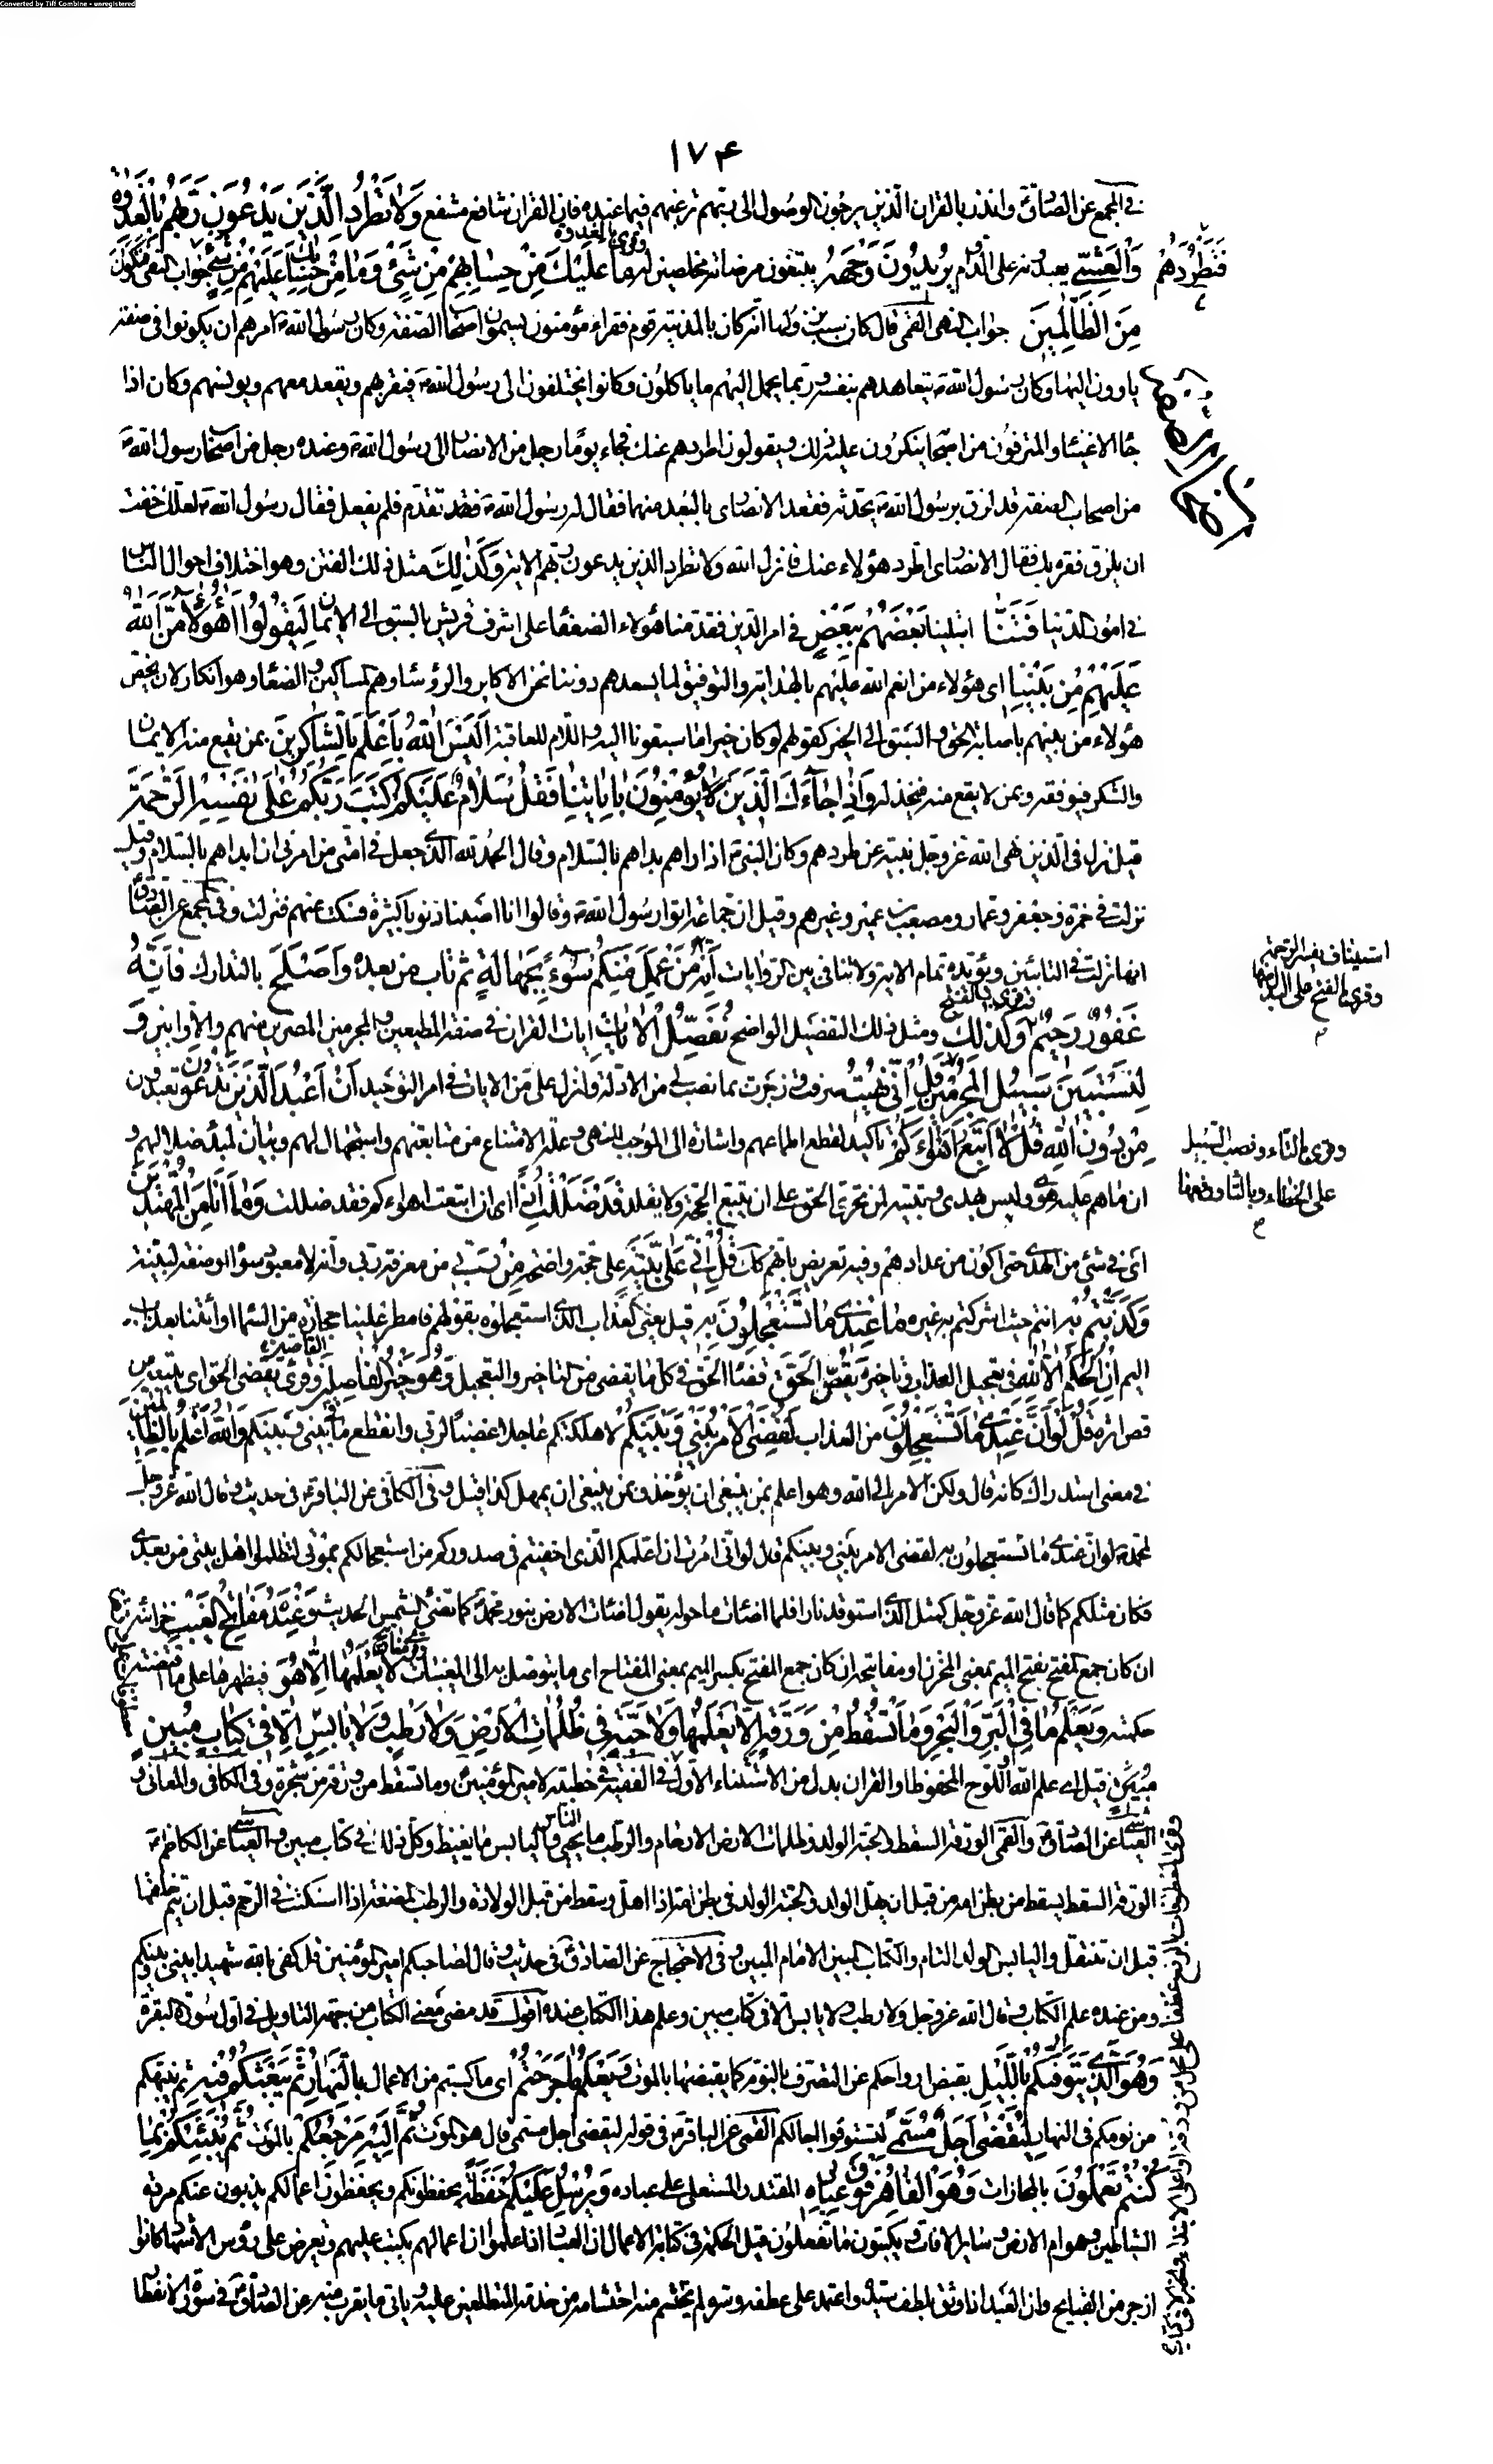 Converted by Tiff Combine - unregistered
١٧۴
في المجمع عن الصادق وانذر بالقران الذين يرجون الوصول الى ربهم ترغبهم فيما عنده فان القران شافع مشفع وَلَا تَطْرُدِ الَّذِينَ يَدْعُونَ رَبَّهُمْ بِالْغَدٰوةِ
وقرئ بالغدوة
وَالْعَشِيِّ يعبدونه على الدوام يُرِيدُونَ وَجْهَهُ يبتغون مرضاته مخلصين له مَا عَلَيْكَ مِنْ حِسَابِهِمْ مِنْ شَيْءٍ وَمَا مِنْ حِسَابِكَ عَلَيْهِمْ مِنْ شَيْءٍ فَتَطْرُدَهُمْ جواب النفي فَتَكُونَ
مِنَ الظَّالِمِينَ جواب النهي القمي قال كان سبب نزولها انه كان بالمدينة قوم فقراء مؤمنون يسمون اصحاب الصفة وكان رسول الله ص امرهم ان يكونوا في صفة
ياوون اليها وكان رسول الله ص يتعاهدهم بنفسه وربما يحمل اليهم ما ياكلون وكانوا يختلفون الى رسول الله ص فيقربهم ويقعد معهم ويونسهم وكان اذا
جاء الاغنياء والمترفون من اصحابه ينكرون عليه ذلك ويقولون اطردهم عنك فجاء يوما رجل من الانصار الى رسول الله ص وعنده رجل من اصحاب رسول الله ص
من اصحاب الصفة قد لزق برسول الله ص يحدثه فقعد الانصاري بالبعد منهما فقال له رسول الله ص تقدم فلم يفعل فقال رسول الله ص لعلك خفت
ان يلزق فقره بك فقال الانصاري اطرد هؤلاء عنك فانزل الله ولا تطرد الذين يدعون ربهم الاية وَكَذَلِكَ مثل ذلك الفتن وهو اختلاف احوال الناس
في امور الدنيا فَتَنَّا ابتلينا بَعْضَهُمْ بِبَعْضٍ في امر الدين فقدمنا هؤلاء الضعفاء على اشراف قريش بالسبق الى الايمان لِيَقُولُوا أَهَؤُلَاءِ مَنَّ اللَّهُ
عَلَيْهِمْ مِنْ بَيْنِنَا اي هؤلاء من انعم الله عليهم بالهداية والتوفيق لما يسعدهم دوننا نحن الاكابر والرؤساء وهم المساكين والضعفاء وهو انكار لان يخص
هؤلاء من بينهم باصابة الحق والسبق الى الخير كقولهم لو كان خيرا ما سبقونا اليه واللام للعاقبة أَلَيْسَ اللَّهُ بِأَعْلَمَ بِالشَّاكِرِينَ بمن يقع منه الايمان
والشكر فيوفقه وبمن لا يقع منه فيخذله وَإِذَا جَاءَكَ الَّذِينَ يُؤْمِنُونَ بِآيَاتِنَا فَقُلْ سَلَامٌ عَلَيْكُمْ كَتَبَ رَبُّكُمْ عَلَى نَفْسِهِ الرَّحْمَةَ
قيل نزل في الذين نهى الله عز وجل نبيه عن طردهم وكان النبي ص اذا راهم بداهم بالسلام وقال الحمد لله الذي جعل في امتي من امرني ان ابداهم بالسلام وقيل
نزلت في حمزة وجعفر وعمار ومصعب بن عمير وغيرهم وقيل ان جماعة اتوا رسول الله ص وقالوا انا اصبنا ذنوبا كثيرة فسكت عنهم فنزلت وفي المجمع عن الصادق
انها نزلت في التائبين ويؤيده تمام الاية ولا تنافي بين الروايات أَنَّهُ مَنْ عَمِلَ مِنْكُمْ سُوءًا بِجَهَالَةٍ ثم تاب من بعده وَأَصْلَحَ بالتدارك فَأَنَّهُ
وقرئ بالفتح
غَفُورٌ رَحِيمٌ وَكَذَلِكَ ومثل ذلك التفصيل الواضح نُفَصِّلُ الْآيَاتِ ايات القران في صفة المطيعين والمجرمين المصرين منهم والاوابين وَ
لِتَسْتَبِينَ سَبِيلُ الْمُجْرِمِينَ قُلْ إِنِّي نُهِيتُ صرفت وزجرت بما نصب لي من الادلة وانزل علي من الايات في امر التوحيد أَنْ أَعْبُدَ الَّذِينَ تَدْعُونَ تعبدون
مِنْ دُونِ اللَّهِ قُلْ لَا أَتَّبِعُ أَهْوَاءَكُمْ تاكيد لقطع اطماعهم واشارة الى الموجب للنهي وعلة الامتناع من متابعتهم واستجهال لهم وبيان لمبدء ضلالهم و
ان ما هم عليه هوى وليس بهدى وتنبيه لمن تحرى الحق على ان يتبع الحجة ولا يقلد قَدْ ضَلَلْتُ إِذًا اي ان اتبعت اهواءكم فقد ضللت وَمَا أَنَا مِنَ الْمُهْتَدِينَ
اي في شيء من الهدى حتى اكون من عدادهم وفيه تعريض بانهم كذلك قُلْ إِنِّي عَلَى بَيِّنَةٍ على حجة واضحة مِنْ رَبِّي من معرفة ربي وانه لا معبود سواه او صفة لبينة
وَكَذَّبْتُمْ بِهِ انتم حيث اشركتم به غيره مَا عِنْدِي مَا تَسْتَعْجِلُونَ بِهِ قيل يعني العذاب الذي استعجلوه بقولهم فامطر علينا حجارة من السماء او ائتنا بعذاب
اليم إِنِ الْحُكْمُ إِلَّا لِلَّهِ في تعجيل العذاب وتاخيره يَقُصُّ الْحَقَّ قضاء الحق في كل ما يقضي من التاخير والتعجيل وَهُوَ خَيْرُ الْفَاصِلِينَ القاضين وقرئ يقضي الحق اي يتبعه من
قص اثره قُلْ لَوْ أَنَّ عِنْدِي مَا تَسْتَعْجِلُونَ من العذاب لَقُضِيَ الْأَمْرُ بَيْنِي وَبَيْنَكُمْ لاهلكتكم عاجلا غضبا لربي وانقطع ما بيني وبينكم وَاللَّهُ أَعْلَمُ بِالظَّالِمِينَ
في معنى استدراك كانه قال ولكن الامر الى الله وهو اعلم بمن ينبغي ان يؤخذ وبمن ينبغي ان يمهل كذا قيل وفي الكافي عن الباقر ع في حديث قال الله عز وجل
لمحمد ص لو ان عندي ما تستعجلون به لقضي الامر بيني وبينكم قال لو اني امرت ان اعلمكم الذي اخفيتم في صدوركم من استعجالكم بموتي لتظلموا اهل بيتي من بعدي
فكان مثلكم كما قال الله عز وجل كمثل الذي استوقد نارا فلما اضاءت ما حوله يقول اضاءت الارض بنور محمد كما تضيء الشمس الحديث وَعِنْدَهُ مَفَاتِحُ الْغَيْبِ خزائنه
ان كان جمع المفتح بفتح الميم بمعنى المخزن او مفاتيحه ان كان جمع المفتح بكسر الميم بمعنى المفتاح اي ما يتوصل به الى المغيبات لَا يَعْلَمُهَا إِلَّا هُوَ فيظهرها على ما اقتضته
حكمته وَيَعْلَمُ مَا فِي الْبَرِّ وَالْبَحْرِ وَمَا تَسْقُطُ مِنْ وَرَقَةٍ إِلَّا يَعْلَمُهَا وَلَا حَبَّةٍ فِي ظُلُمَاتِ الْأَرْضِ وَلَا رَطْبٍ وَلَا يَابِسٍ إِلَّا فِي كِتَابٍ مُبِينٍ
قيل اي علم الله او اللوح المحفوظ او القران بدل من الاستثناء الاول في الفقيه في خطبة لامير المؤمنين وما تسقط من ورقة من شجرة وفي الكافي والمعاني و
العياشي عن الصادق والقمي الورقة السقط والحبة الولد وظلمات الارض الارحام والرطب ما يحيى من الناس واليابس ما يغيض وكل ذلك في كتاب مبين والعياشي عن الكاظم ع
الورقة السقط يسقط من بطن امه من قبل ان يهل الولد والحبة الولد في بطن امه اذا اهل ويسقط من قبل الولادة والرطب المضغة اذا اسكنت في الرحم قبل ان يتم خلقها
قبل ان تنتقل واليابس الولد التام والكتاب المبين الامام المبين وفي الاحتجاج عن الصادق في حديث وقال لصاحبكم امير المؤمنين قل كفى بالله شهيدا بيني وبينكم
ومن عنده علم الكتاب وقال الله عز وجل ولا رطب ولا يابس الا في كتاب مبين وعلم هذا الكتاب عنده اقول قد مضى معنى الكتاب من جهة التاويل في اول سورة البقرة
وَهُوَ الَّذِي يَتَوَفَّيكُمْ بِاللَّيْلِ يقبض ارواحكم عن التصرف بالنوم كما يقبضها بالموت وَيَعْلَمُ مَا جَرَحْتُمْ اي ما كسبتم من الاعمال بِالنَّهَارِ ثُمَّ يَبْعَثُكُمْ فِيهِ ثم ينبهكم
من نومكم في النهار لِيُقْضَى أَجَلٌ مُسَمًّى لتستوفوا اجالكم القمي عن الباقر ع في قوله ليقضى اجل مسمى قال هو الموت ثُمَّ إِلَيْهِ مَرْجِعُكُمْ بالموت ثُمَّ يُنَبِّئُكُمْ بِمَا
كُنْتُمْ تَعْمَلُونَ بالمجازات وَهُوَ الْقَاهِرُ فَوْقَ عِبَادِهِ المقتدر المستعلي على عباده وَيُرْسِلُ عَلَيْكُمْ حَفَظَةً يحفظونكم ويحفظون اعمالكم يذبون عنكم مردة
الشياطين وهوام الارض وساير الافات ويكتبون ما تفعلون قيل الحكمة في كتابة الاعمال ان العباد اذا علموا ان اعمالهم يكتب عليهم وتعرض على رؤس الاشهاد كانوا
ازجر من القبايح وان العبد اذا وثق بلطف سيده واعتمد على عطفه وستره لم يحتشم منه احتشامه من خدمه المطلعين عليه وياتي ما يقرب منه عن الصادق ع في سورة الانفطار
استيناف يفسر الرحمة
وقرئ بالفتح على البدل منها
م
وقرئ بالتاء ونصب السبيل
على الخطاء وبالتاء ورفعها
م